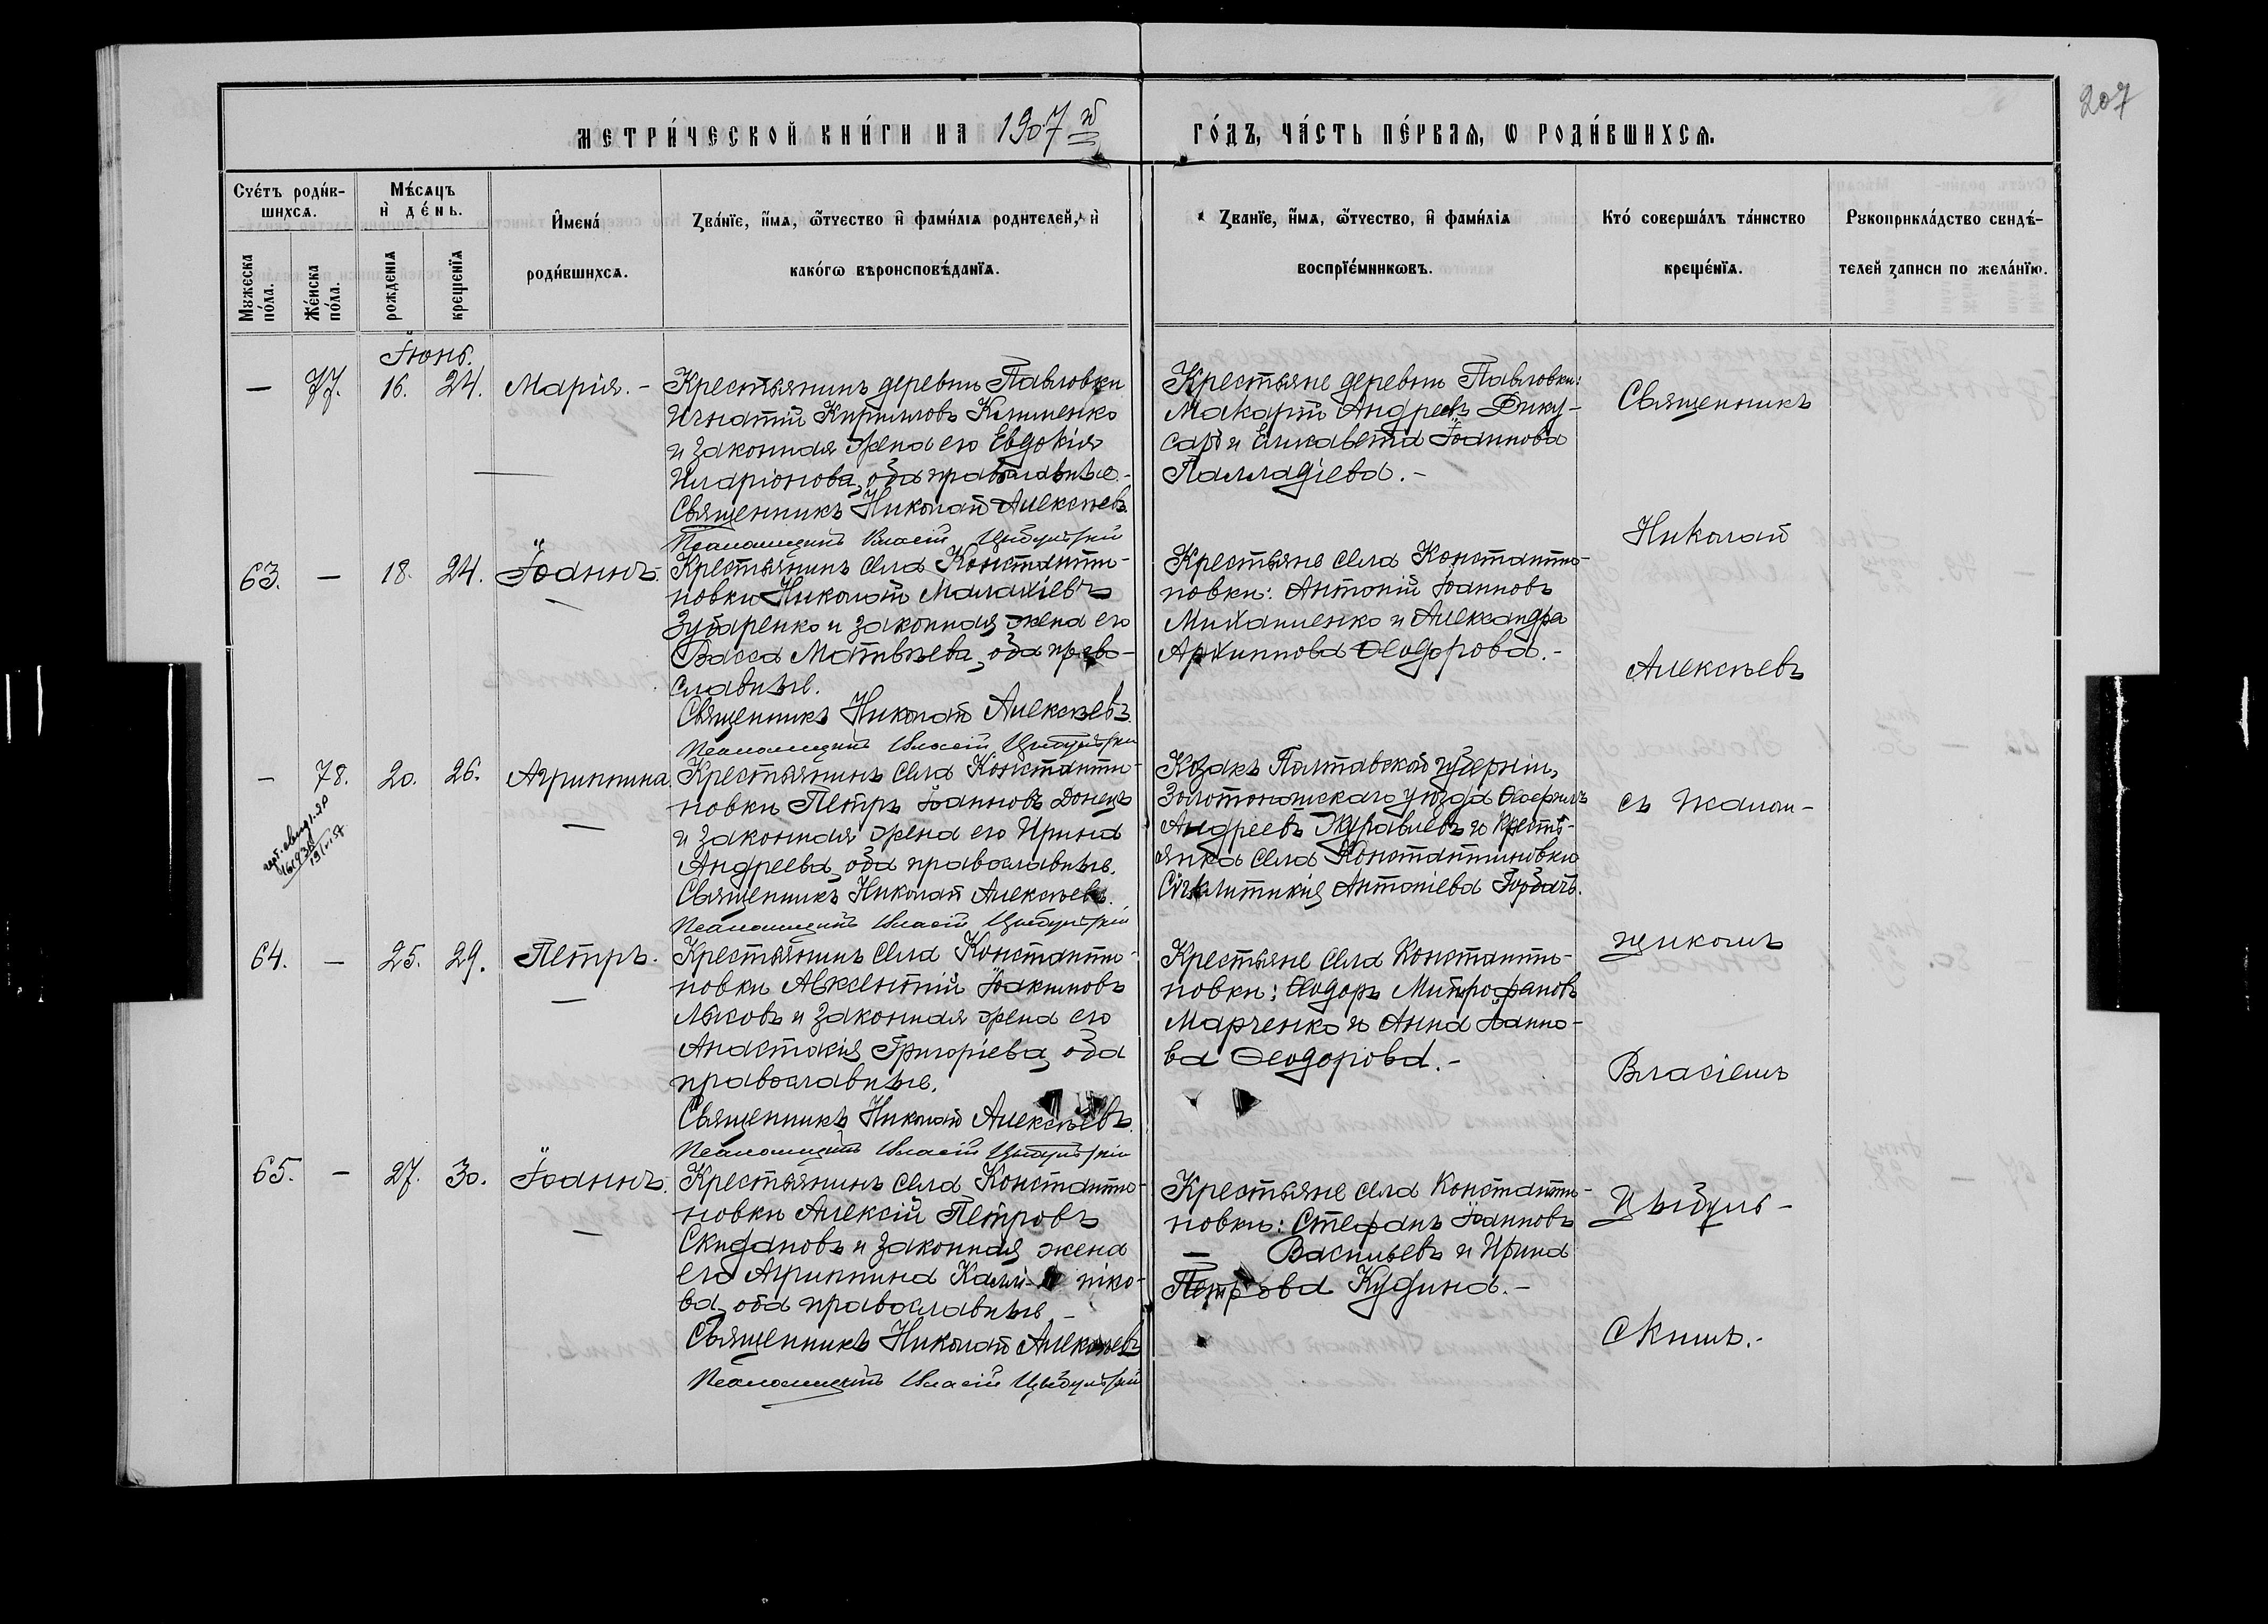 207
МЕТРИ́ЧЕСКОЙ КНИ́ГИ НА 1907й ГО́ДЪ, ЧА́СТЬ ПЕ́РВАѦ, Ѡ РОДИ́ВШИХСѦ.
Сче́тъ роди́в-
шихсѧ.
Мꙋжеска
по́ла.
Же́нска
по́ла.
Мѣ́сѧцъ
и҆ де́нь.
рожденїѧ
крещенїѧ
И҆мена́
роди́вшихсѧ.
Зва́нїе, и҆́мѧ, ѻ҆́тчество и҆ фами́лїѧ родителей, и҆
како́гѡ вѣроисповѣ́данїѧ.
Званїе, и҆́мѧ, ѻ҆́тчество, и҆ фами́лїѧ
воспрїе́мникѡвъ.
Кто́ соверша́лъ та́инство
креще́нїѧ.
Рꙋкоприкла́дство свидѣ́-
телей записи по жела́нїю.
Іюнь.
— 77. 16. 24. Марія. –
Крестьянинъ деревни Павловки
Игнатій Кирилловъ Клименко
и законная жена его Евдокія
Иларіонова, оба православные.–
Священникъ Николай Алексѣевъ
Псаломщикъ Власій Цыбульскій
Крестьяне деревни Павловки:
Макарій Андреевъ Дику-
сарь и Елисавета Іоаннова
Палладіева.–
63. — 18. 24. Іоаннъ.
Крестьянинъ села Константи-
новки Николай Малахіевъ
Зубаренко и законная жена его
Васса Матвѣева, оба право-
славные.
Священникъ Николай Алексѣевъ.
Псаломщикъ Власій Цыбульскій
Крестьяне села Константи-
новки: Антоній Іоанновъ
Михайленко и Александра
Архиппова Ѳеодорова.–
— 78. 20. 26. Агриппина.
19/VI 57
Крестьянинъ села Константи-
новки Петръ Іоанновъ Донецъ
и законная жена его Ирина
Андреева, оба православные.
Священникъ Николай Алексѣевъ.
Псаломщикъ Власій Цыбульскій
Козакъ Полтавской губерніи,
Золотоношскаго уѣзда Ѳеофилъ
Андреевъ Журавлевъ и кресть-
янка села Константиновки
Сѵнклитикія Антоніева Горбачъ.
64. — 25. 29. Петръ.
Крестьянинъ села Константи-
новки Авксентій Іоакимовъ
Лысовъ и законная жена его
Анастасія Григоріева, оба
православные.
Священникъ Николай Алексѣевъ.
Псаломщикъ Власій Цыбульскій
Крестьяне села Константи-
новки: Ѳеодоръ Митрофановъ
Марченко и Анна Іоанно-
ва Ѳеодорова.–
65. — 27. 30. Іоаннъ.
Крестьянинъ села Константи-
новки Алексій Петровъ
Скидановъ и законная жена
его Агриппина Калли- нико-
ва, оба православные.–
Священникъ Николай Алексѣевъ
Псаломщикъ Власій Цыбульскій
Крестьяне села Константи-
новки: Стефанъ Іоанновъ
— Васильевъ и Ирина
Петрова Кудина.–
Священникъ
Николай
Алексѣевъ
съ псалом-
щикомъ
Власіемъ
Цыбуль-
скимъ.–